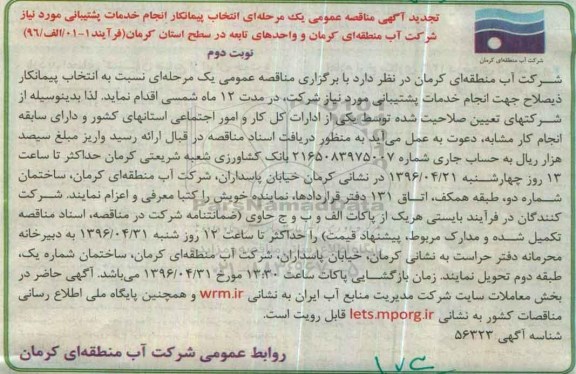 تجدید آگهی مناقصه عمومی یک مرحله‌ای انتخاب پیمانکار انجام خدمات پشتیبانی مورد نیاز
شرکت آب منطقه‌ای کرمان و واحدهای تابعه در سطح استان کرمان(فرآیند۱-۰۱/الف/۹۶)
نوبت دوم
شرکت آب منطقه‌ای کرمان
شرکت آب منطقه‌ای کرمان در نظر دارد با برگزاری مناقصه عمومی یک مرحله‌ای نسبت به انتخاب پیمانکار
ذیصلاح جهت انجام خدمات پشتیبانی مورد نیاز شرکت، در مدت ۱۲ ماه شمسی اقدام نماید. لذا بدینوسیله از
شرکتهای تعیین صلاحیت شده توسط یکی از ادارات کل کار و امور اجتماعی استانهای کشور و دارای سابقه
انجام کار مشابه، دعوت به عمل می‌آید به منظور دریافت اسناد مناقصه در قبال ارائه رسید واریز مبلغ سیصد
هزار ریال به حساب جاری شماره ۲۱۶۵۰۸۳۹۷۵۰۰۷ بانک کشاورزی شعبه شریعتی کرمان حداکثر تا ساعت
۱۳ روز چهارشنبه ۱۳۹۶/۰۴/۲۱ در نشانی کرمان خیابان پاسداران، شرکت آب منطقه‌ای کرمان، ساختمان
شماره دو، طبقه همکف، اتاق ۱۳۱ دفتر قراردادها، نماینده خویش را کتبا معرفی و اعزام نمایند. شرکت
کنندگان در فرآیند بایستی هریک از پاکات الف و ب و ج حاوی (ضمانتنامه شرکت در مناقصه، اسناد مناقصه
تکمیل شده و مدارک مربوط، پیشنهاد قیمت) را حداکثر تا ساعت ۱۲ روز شنبه ۱۳۹۶/۰۴/۳۱ به دبیرخانه
محرمانه دفتر حراست به نشانی کرمان، خیابان پاسداران، شرکت آب منطقه‌ای کرمان، ساختمان شماره یک،
طبقه دوم تحویل نمایند. زمان بازگشایی پاکات ساعت ۱۳:۳۰ مورخ ۱۳۹۶/۰۴/۳۱ می‌باشد. آگهی حاضر در
بخش معاملات سایت شرکت مدیریت منابع آب ایران به نشانی wrm.ir و همچنین پایگاه ملی اطلاع رسانی
مناقصات کشور به نشانی iets.mporg.ir قابل رویت است.
شناسه آگهی: ۵۶۳۲۳
روابط عمومی شرکت آب منطقه‌ای کرمان